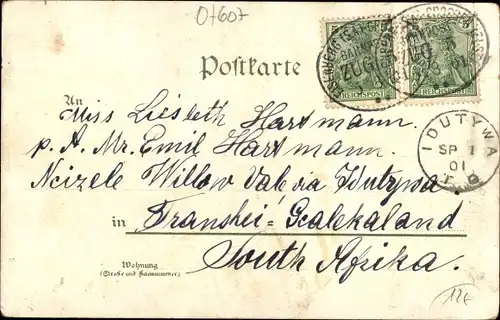 01607
REICHSPOST
REICHSPOST
ZUG
Postkarte
An
Miss Liesbeth Hartmann.
p. A. Mr. Emil Hartmann.
Ncizele Willow Vale via Idutywa
in Transkei-Gcalekaland
South Afrika.
IDUTYWA
SP 1
01
Wohnung
(Straße und Hausnummer)
12f